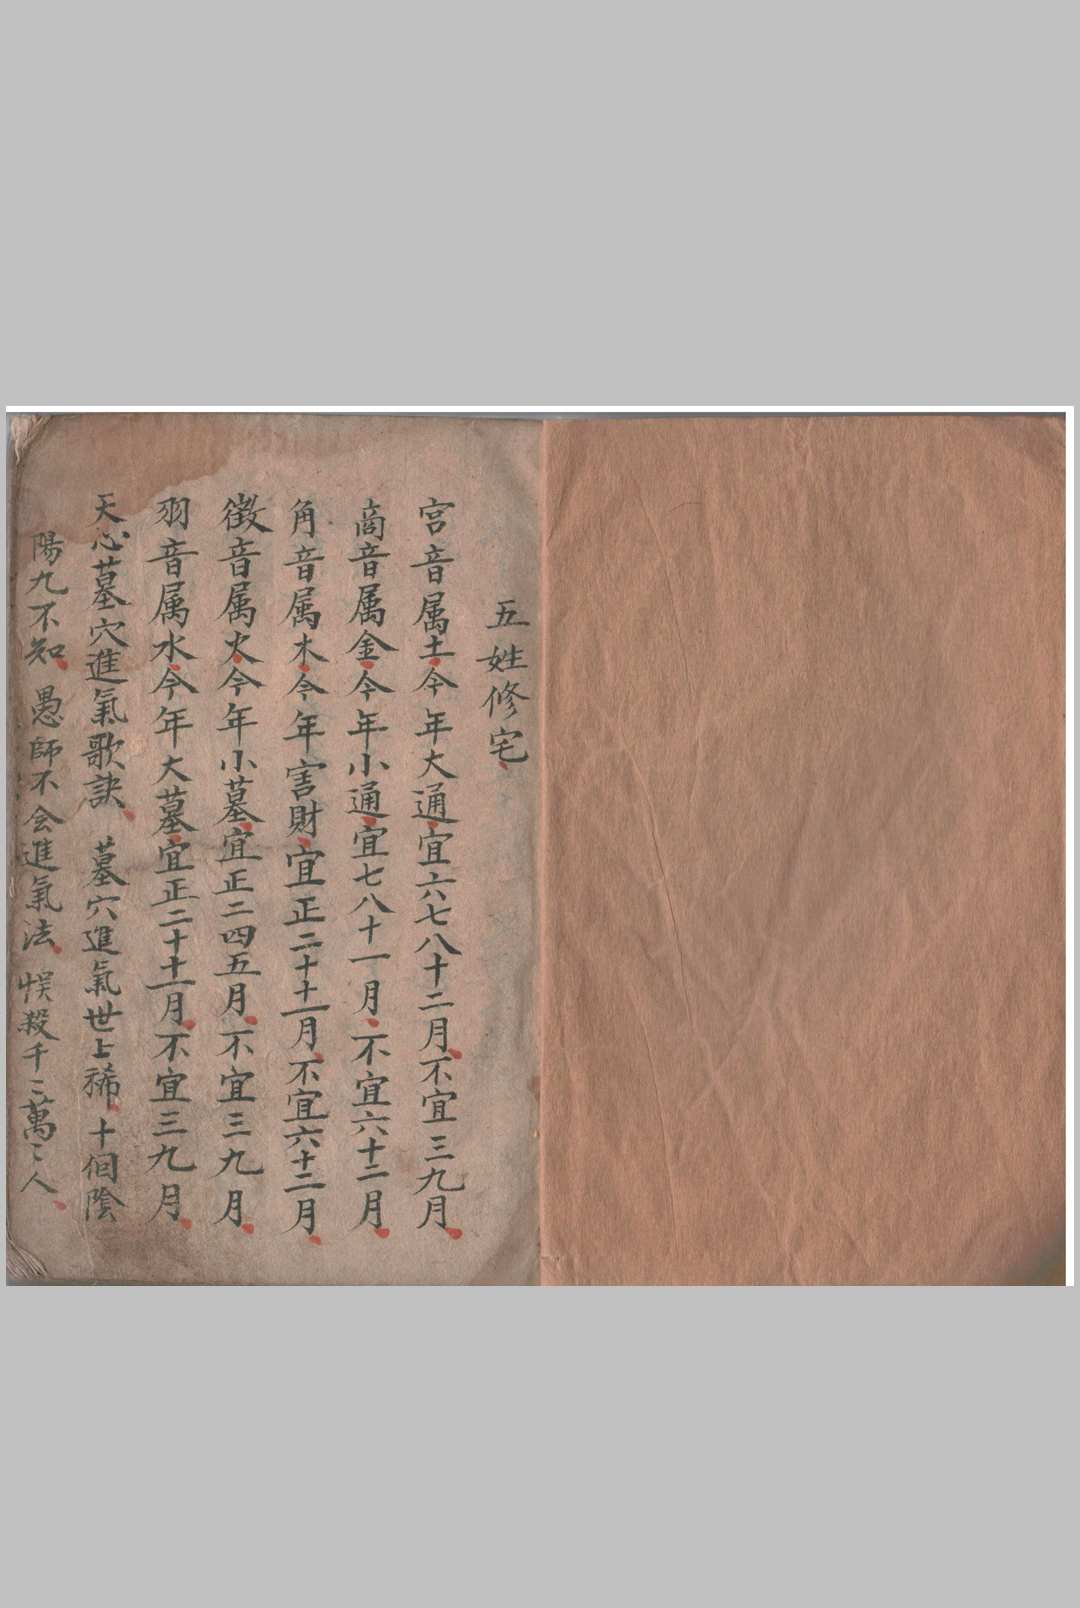 五姓修宅
宮音属土今年大通宜六七八十二月不宜三九月
商音属金今年小通宜七八十一月不宜六十二月
角音属木今年害財宜正二十十一月不宜六十二月
徵音属火今年小墓宜正二四五月不宜三九月
羽音属水今年大墓宜正二十十一月不宜三九月
天心墓穴進氣歌訣 墓穴進氣世上稀十個陰
陽九不知 愚師不会進氣法 悮殺千〻萬〻人